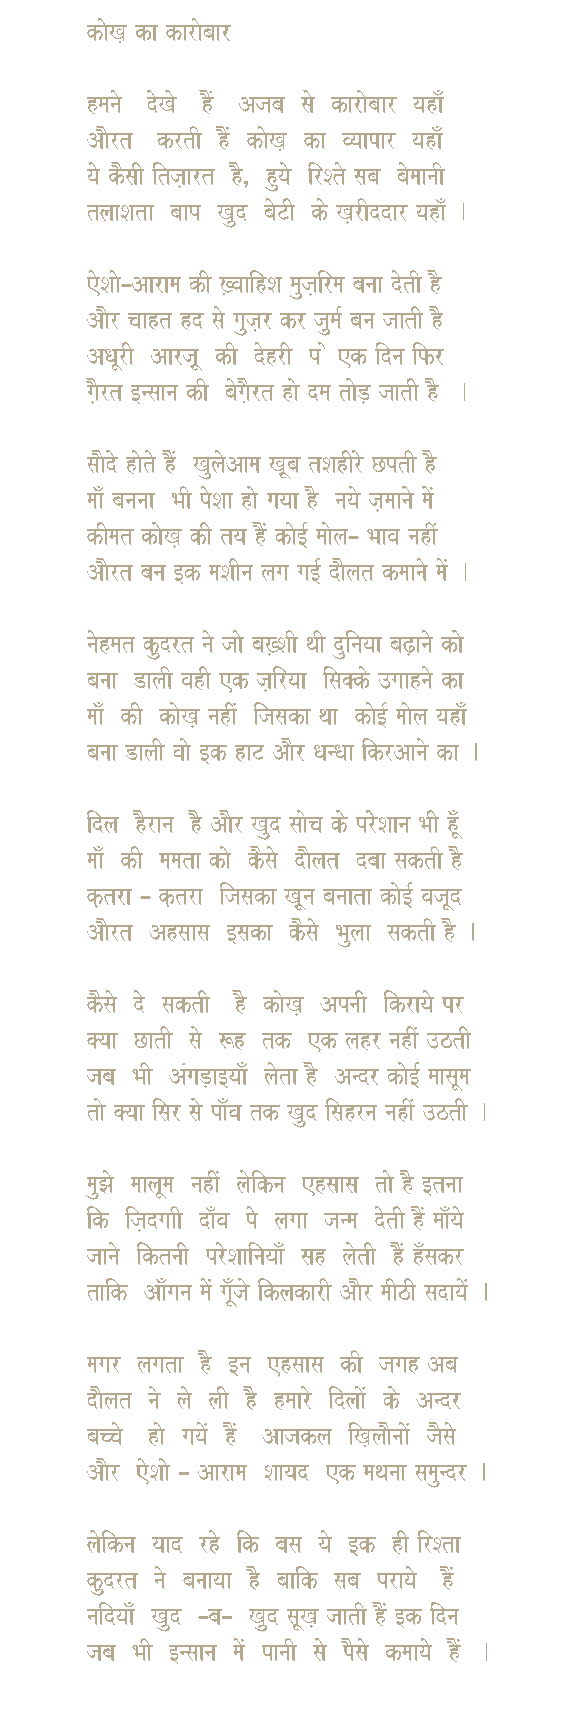 कोख़ का कारोबार
हमने देखे हैं अजब से कारोबार यहाँ
औरत करती हैं कोख़ का व्यापार यहाँ
ये कैसी तिज़ारत है, हुये रिश्ते सब बेमानी
तलाशता बाप खुद बेटी के ख़रीददार यहाँ ।
ऐशो-आराम की ख़्वाहिश मुज़रिम बना देती है
और चाहत हद से गुज़र कर जुर्म बन जाती है
अधूरी आरज़ू की देहरी पे एक दिन फिर
ग़ैरत इन्सान की बेग़ैरत हो दम तोड़ जाती है ।
सौदे होते हैं खुलेआम खूब तशहीरे छपती है
माँ बनना भी पेशा हो गया है नये ज़माने में
कीमत कोख़ की तय हैं कोई मोल- भाव नहीं
औरत बन इक मशीन लग गई दौलत कमाने में ।
नेहमत कुदरत ने जो बख़्शी थी दुनिया बढ़ाने को
बना डाली वही एक ज़रिया सिक्के उगाहने का
माँ की कोख़ नहीं जिसका था कोई मोल यहाँ
बना डाली वो इक हाट और धन्धा किरआने का ।
दिल हैरान है और खुद सोच के परेशान भी हूँ
माँ की ममता को कैसे दौलत दबा सकती है
क़तरा - क़तरा जिसका खून बनाता कोई वजूद
औरत अहसास इसका कैसे भुला सकती है ।
कैसे दे सकती है कोख़ अपनी किराये पर
क्या छाती से रूह तक एक लहर नहीं उठती
जब भी अंगड़ाइयाँ लेता है अन्दर कोई मासूम
तो क्या सिर से पाँव तक खुद सिहरन नहीं उठती ।
मुझे मालूम नहीं लेकिन एहसास तो है इतना
कि ज़िदगाी दाँव पे लगा जन्म देती हैं माँये
जाने कितनी परेशानियाँ सह लेती हैं हँसकर
ताकि आँगन में गूँजे किलकारी और मीठी सदायें ।
मगर लगता है इन एहसास की जगह अब
दौलत ने ले ली है हमारे दिलों के अन्दर
बच्चे हो गयें हैं आजकल खि़लौनों जैसे
और ऐशो - आराम शायद एक मथना समुन्दर ।
लेकिन याद रहे कि बस ये इक ही रिश्ता
कुदरत ने बनाया है बाकि सब पराये हैं
नदियाँ खुद -ब- खुद सूख़ जाती हैं इक दिन
जब भी इन्सान में पानी से पैसे कमाये हैं ।